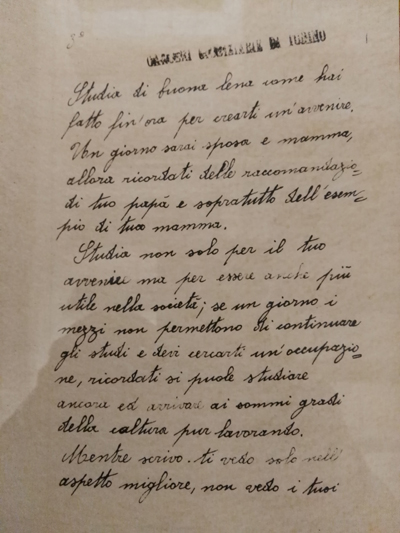 3º
CARCERI GIUDIZIARIE DI TORINO
Studia di buona lena come hai
fatto fin'ora per crearti un'avvenire.
Un giorno sarai sposa e mamma,
allora ricordati delle raccomandazio=
di tuo papà e sopratutto dell'esem=
pio di tua mamma.
Studia non solo per il tuo
avvenire ma per essere anche più
utile nella società; se un giorno i
mezzi non permettono di continuare
gli studi e devi cercarti un'occupazio=
ne, ricordati si puole studiare
ancora ed arrivare ai sommi gradi
della coltura pur lavorando.
Mentre scrivo ti vedo solo nell'
aspetto migliore, non vedo i tuoi